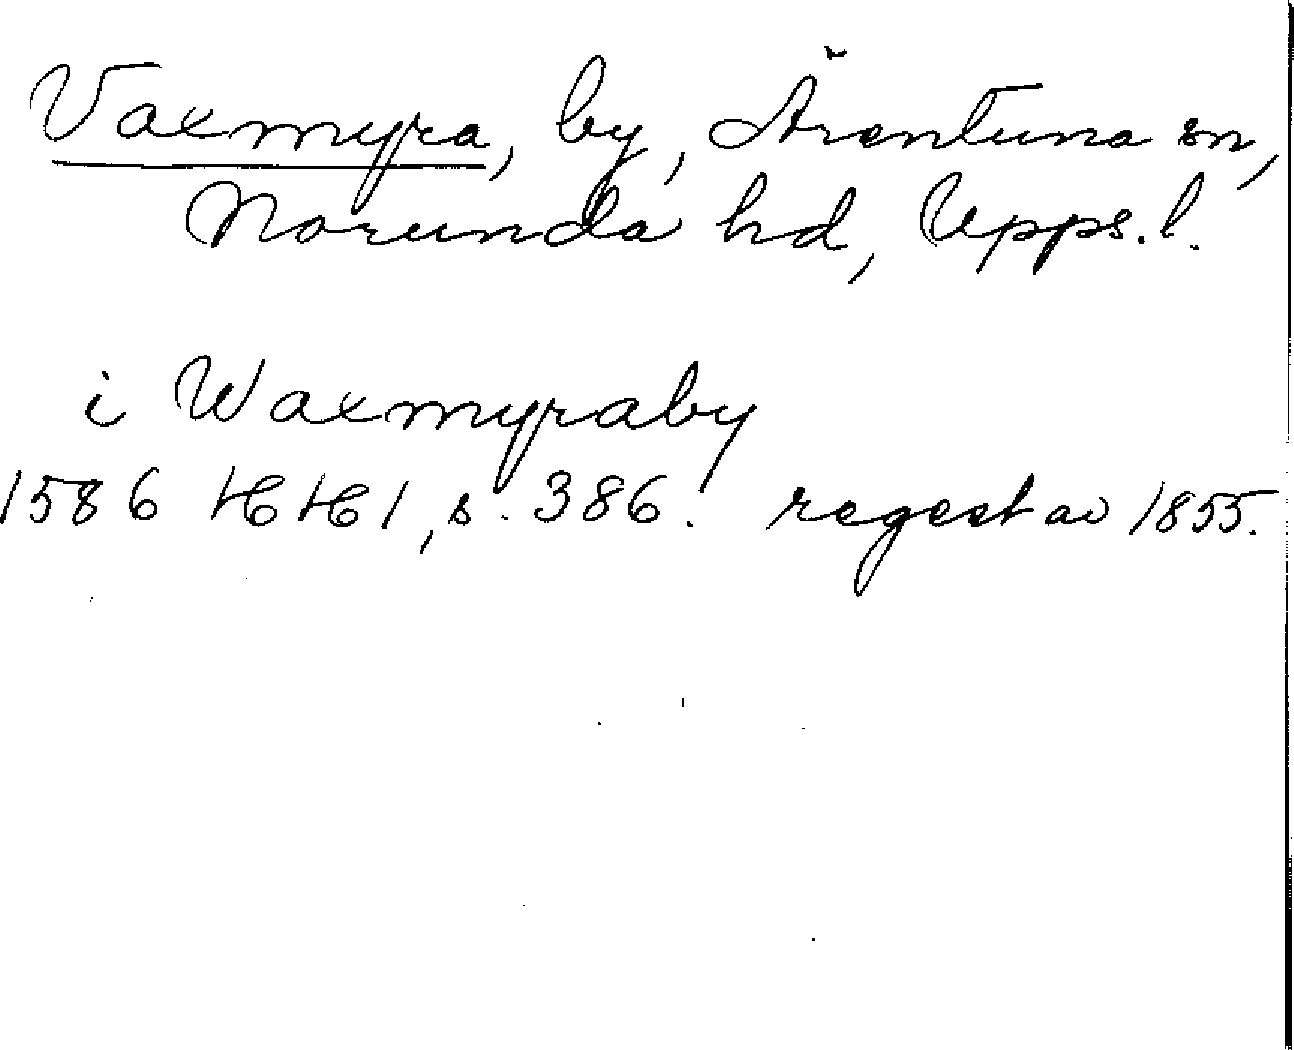 Vaxmyra, by, Ärentuna sn,
Norunda hd, Upps. l.
i Waxmyraby
1586 HH 1, s. 386. regest av 1855.